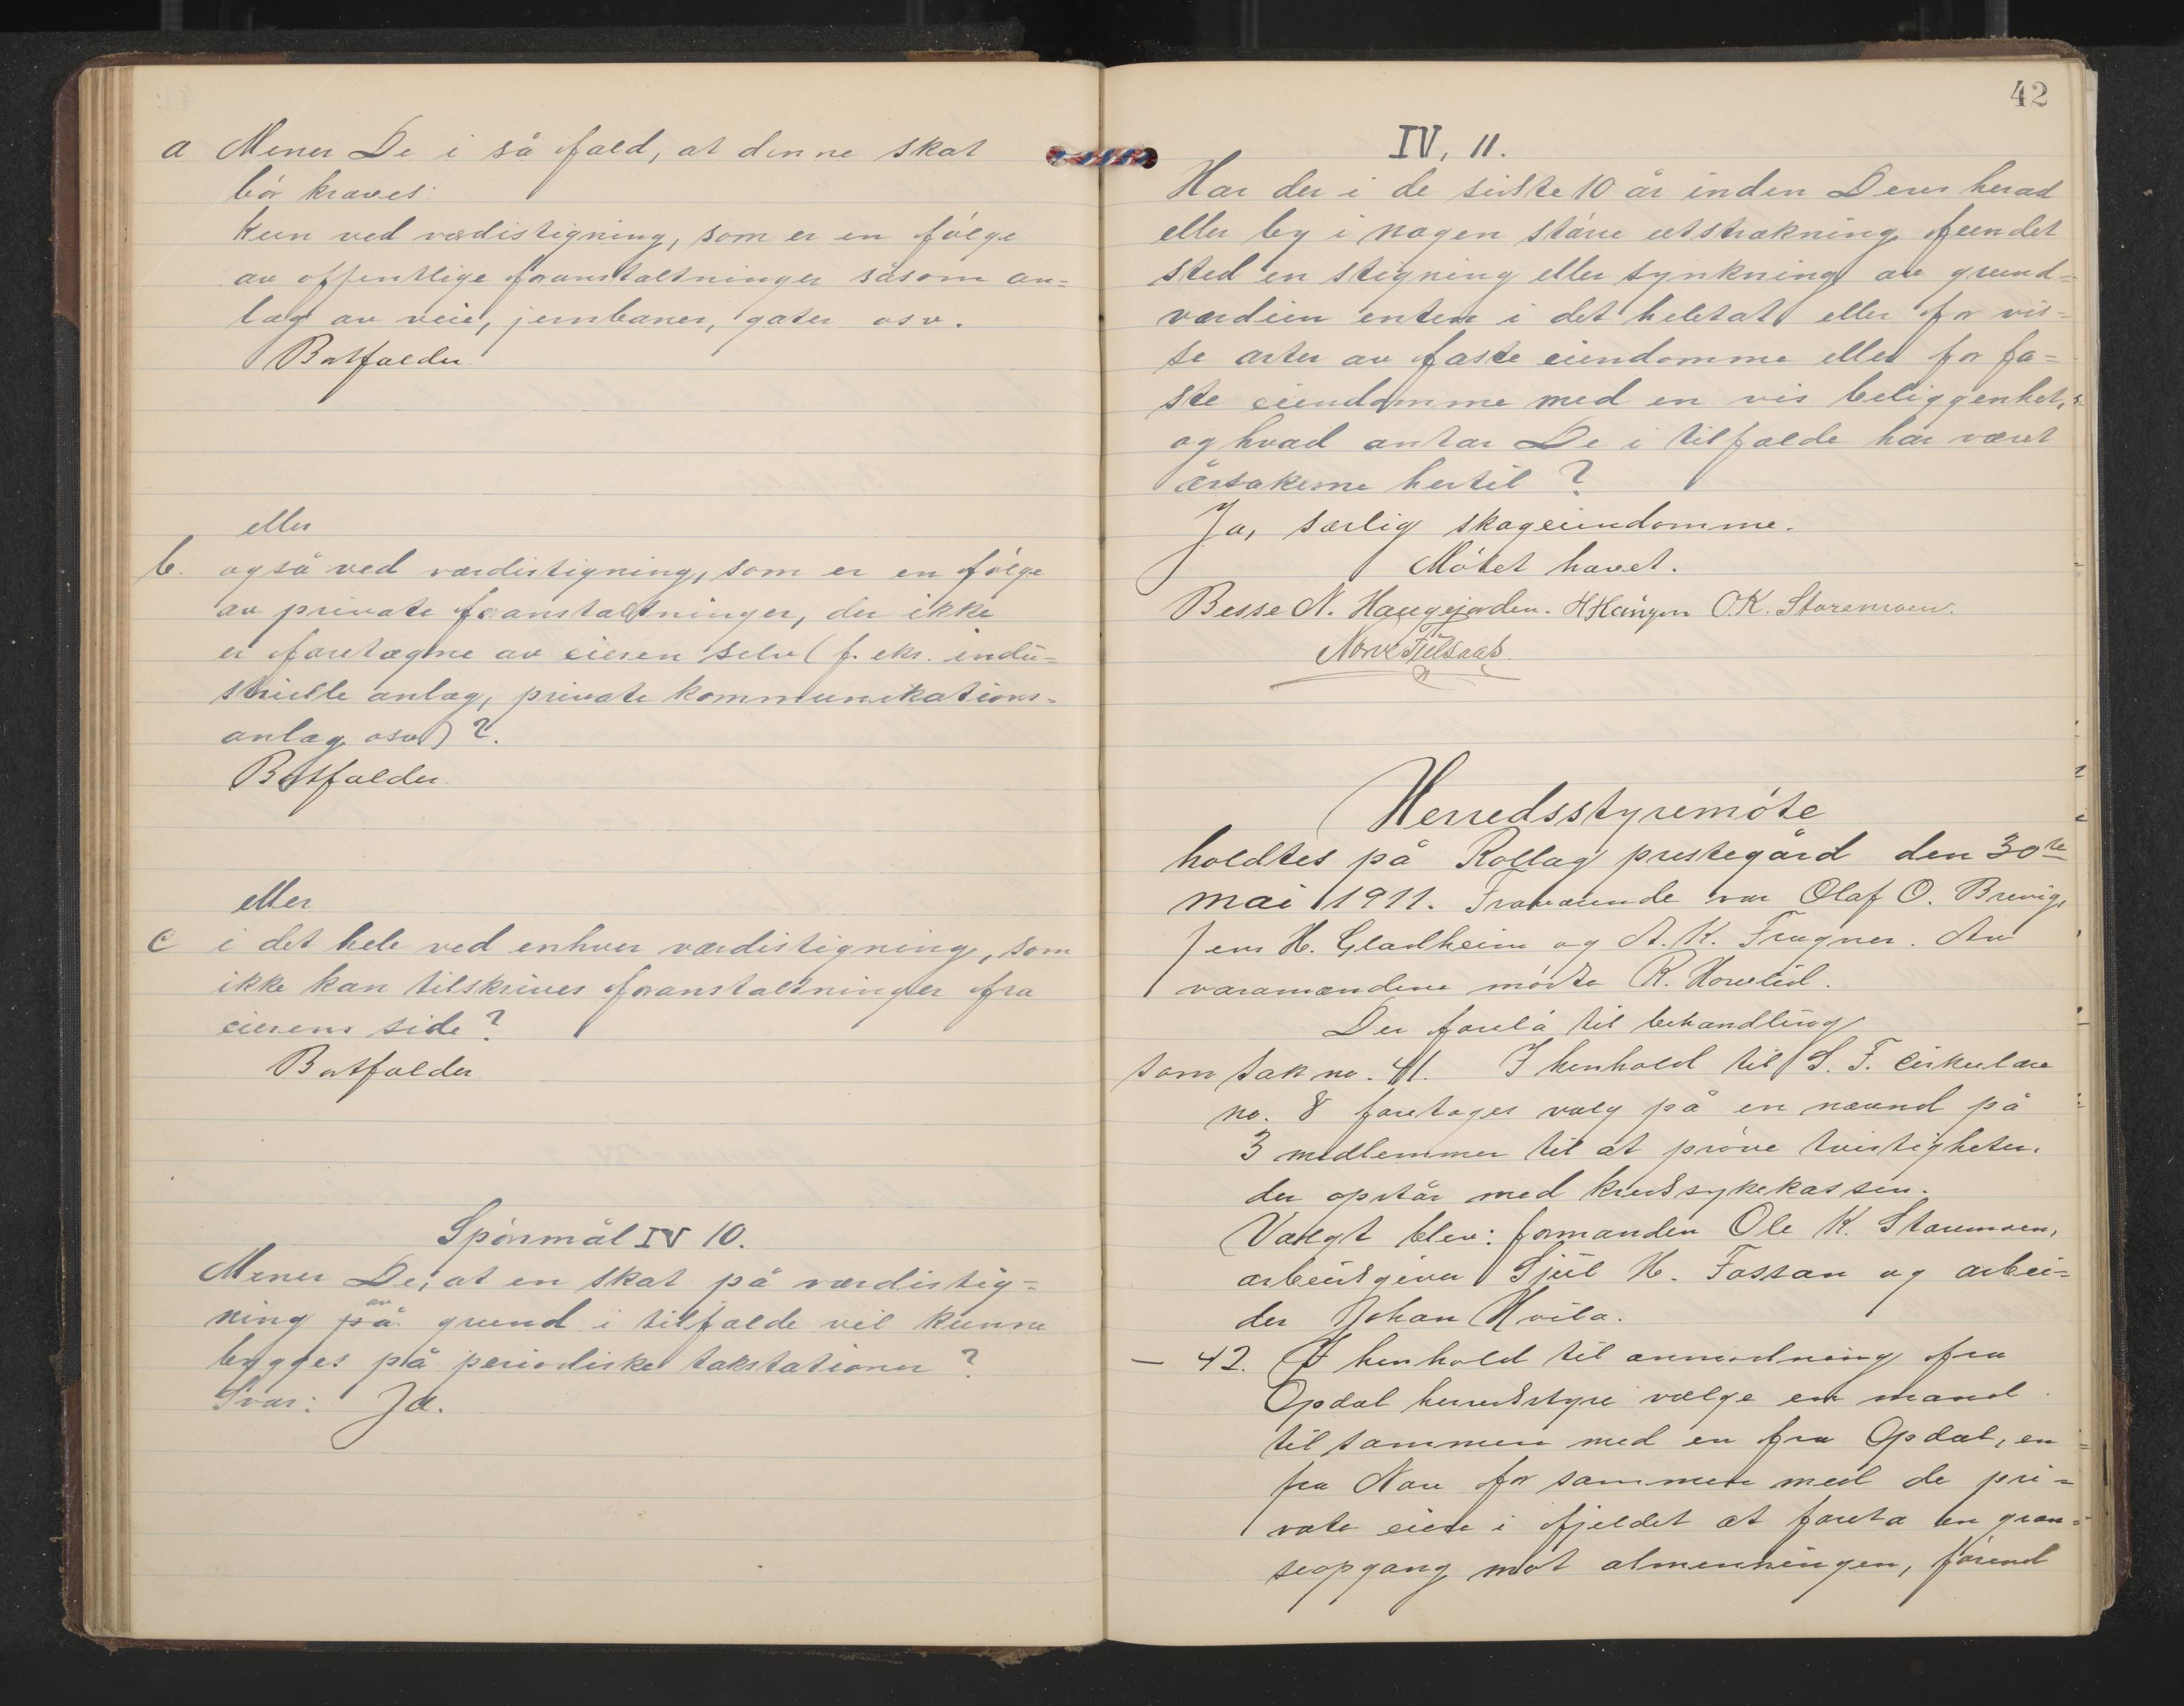 a Mener De i så fald, at denne skat
bór kræves:
Kun ved værdistigning, som er en fólge
av offentlige foranstaltninger såsom an=
læg av veie, jernbaner, gater osv.
Bortfalder.
eller
b. også ved værdistigning, som er en fólge
av private foranstaltninger, der ikke
er foretagne av eieren selv (f. eks. indu=
strielle anlæg, private kommunikations=
anlæg osv) ?.
Bortfalder.
eller
c i det hele ved enhver værdistigning, som
ikke kan tilskrives foranstaltninger fra
eierens side?
Bortfalder
Spórsmål IV 10.
Mener De, at en skat på værdistig=
ning på av grund i tilfælde vil kunne
bygges på periodiske takstationer ?
Svar: Ja.
42
IV, 11.
Har der i de siste 10 år inden Deres herad
eller by i nogen stórre utstrækning fundet
sted en stigning eller synkning av grund=
værdien enten i det heletat eller for vis=
se arter av faste eiendomme eller for fa=
ste eiendomme med en vis beliggenhet,
og hvad antar De i tilfælde har været
årsakerne hertil ?
Ja, særlig skogeiendomme.
Mótet hævet.
Besse N. Haugejorden. O.K. Storemoen.
Herredsstyremóte
holdtes på Rollag prestegård den 30te
mai 1911. Fraværende var Olaf O. Brevig,
Jens H. Gladheim og A. K. Fragner. Av
varamændene módte R. Hovelid.
Der forelå til behandling
som sak no. 41. I henhold til S. F. cirkulære
no. 8 foretages valg på en nævnd på
3 medlemmer til at próve tvistigheter,
der opstår med kredssykekassen.
Valgt blev: formanden Ole K. Storemoen,
arbeidsgiver Sjul H. Fossan og arbei=
der Johan Hvila.
— 42. I henhold til anmodning fra
Opdal herredsstyre vælge en mand
til sammen med en fra Opdal, en
fra Nore for sammen med de pri=
vate eiere i fjeldet at foreta en græn=
seopgang mot almenningen, fórend